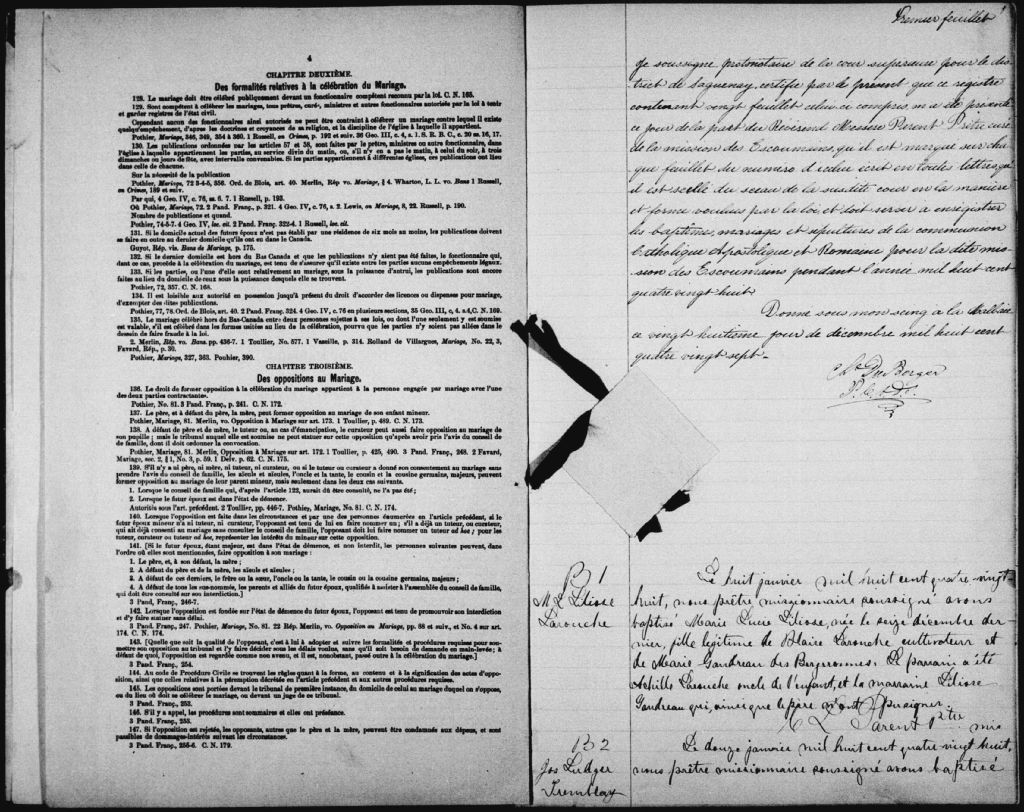 4
CHAPITRE DEUXIÈME.
Des formalités relatives à la célébration du Mariage.
128. Le mariage doit être célébré publiquement devant un fonctionnaire compétent reconnu par la loi. C. N. 165.
129. Sont compétents à célébrer les mariages, tous prêtres, curés, ministres et autres fonctionnaires autorisés par la loi à tenir
et garder registres de l'état civil.
Cependant aucun des fonctionnaires ainsi autorisés ne peut être contraint à célébrer un mariage contre lequel il existe
quelqu'empêchement, d'après les doctrines et croyances de sa religion, et la discipline de l'église à laquelle il appartient.
Pothier, Mariage, 346, 349, 354 à 360. 1 Russell, on Crimes, p. 192 et suiv. 36 Geo. III, c. 4, s. 1. S. R. B. C., c. 20 ss. 16, 17.
130. Les publications ordonnées par les articles 57 et 58, sont faites par le prêtre, ministre ou autre fonctionnaire, dans
l'église à laquelle appartiennent les parties, au service divin du matin, ou, s'il n'y en a pas le matin, à celui du soir, à trois
dimanches ou jours de fête, avec intervalle convenables. Si les parties appartiennent à différentes églises, ces publications ont lieu
dans celle de chacune.
Sur la nécessité de la publication
Pothier, Mariage, 72 3-4-5, 356. Ord. de Blois, art. 40. Merlin, Rép vo. Mariage, § 4. Wharton, L. L. vo. Bans 1 Russell,
on Crimes, 189 et suiv.
Par qui, 4 Geo. IV, c. 76, ss. 6. 7. 1 Russell, p. 193.
Où Pothier, Mariage, 72. 2 Pand. Franç., p. 321. 4 Geo. IV, c. 76, s. 2. Lewis, on Mariage, 8, 22. Russell, p. 190.
Nombre de publications et quand.
Pothier, 74-5-7. 4 Geo. IV, loc. cit. 2 Pand. Franç. 322-4. 1 Russell, loc. cit.
131. Si le domicile actuel des futurs époux n'est pas établi par une résidence de six mois au moins, les publications doivent
se faire en outre au dernier domicile qu'ils ont eu dans le Canada.
Guyot, Rép. vis. Bans de Mariage, p. 175.
132. Si le dernier domicile est hors du Bas Canada et que les publications n'y aient pas été faites, le fonctionnaire qui,
dans ce cas, procède à la célébration du mariage, est tenu de s'assurer qu'il existe entre les parties aucuns empêchements légaux.
133. Si les parties, ou l'une d'elle sont relativement au mariage, sous la puissance d'autrui, les publications sont encore
faites au lieu du domicile de ceux sous la puissance desquels elle se trouvent.
Pothier, 72, 357. C. N. 168.
134. Il est loisible aux autorité en possession jusqu'à présent du droit d'accorder des licences ou dispenses pour mariage,
d'exempter des dites publications.
Pothier, 77, 78 Ord. de Blois, art. 40. 2 Pand. Franç. 324. 4 Geo. IV, c. 76 en plusieurs sections, 35 Geo. III, c, 4. s.4, C. N. 169.
135. Le mariage célébré hors du Bas-Canada entre deux personnes sujettes à ses lois, ou dont l'une seulement y est soumise
est valable, s'il est célébré dans les formes usitées au lieu de la célébration, pourvu que les parties n'y soient pas allées dans le
dessein de faire fraude à la loi.
2. Merlin, Rép. vo. Bans pp. 436-7. 1 Toullier, No. 577. 1 Vassille, p. 314. Rolland de Villargues, Mariage, No. 22, 3,
Favard, Rép., p. 30.
Pothier, Mariage, 327, 363. Pouhier, 390.
CHAPITRE TROISIÈME.
Des oppositions au Mariage.
136. Le droit de former opposition à la célébration du mariage appartient à la personne engagée par mariage avec l'une
des deux parties contractantes.
Pothier, No. 81. 3 Pand. Franç., p. 241. C. N. 172.
137. Le père, et à défaut du père, la mère, peut former opposition au mariage de son enfant mineur.
Pothier, Mariage, 81. Merlin, vo. Opposition à Mariage sur art. 173. 1 Touillier, p. 489. C. N. 173.
138. A défaut de père et de mère, le tuteur ou, au cas d'émancipation, le curateur peut aussi faire opposition au mariage de
son pupille ; mais le tribunal auquel elle est soumise ne peut statuer sur cette opposition qu'après avoir pris l'avis du conseil de
famille, dont il doit ordonner la convocation.
Pothier, Mariage, 81. Merlin, Opposition à Mariage sur art. 172. 1 Toullier, p. 425, 490. 3 Pand. Franç., 248. 2 Favard,
Mariage, sec. 2, § 1, No. 3, p. 59. 1 Delv. p. 62. C. N. 175.
139. S'il n'y a ni père, ni mère, ni tuteur, ni curateur, ou si le tuteur ou curateur a donné son consentement au mariage sans
prendre l'avis du conseil de famille, les aïeuls et aïeules, l'oncle et la tante, le cousin et la cousine germains, majeurs, peuvent
former opposition au mariage de leur parent mineur, mais seulement dans les deux cas suivants.
1. Lorsque le conseil de famille qui, d'après l'article 122, aurait dû être consulté, ne l'a pas été ;
2. Lorsque le futur époux est dans l'état de démence.
Autorités sous l'art. précédent. 2 Toullier, pp. 446-7. Pothier, Mariage, No. 81. C. N. 174.
140. Lorsque l'opposition est faite dans les circonstances et par une des personnes énumérées en l'article précédent, si le
futur époux mineur n'a ni tuteur, ni curateur, l'opposant est tenu de lui en faire nommer un ; s'il a déjà un tuteur, ou curateur,
qui ait déjà consenti au mariage sans consulter le conseil de famille, l'opposant doit lui faire nommer un tuteur ad hoc ; pour les
tuteur, curateur ou tuteur ad hoc, représenter les intérêts du mineur sur cette opposition.
141. [Si le futur époux, étant majeur, est dans l'état de démence, et non interdit, les personnes suivantes peuvent, dans
l'ordre où elles sont mentionnées, faire opposition à son mariage :
1. Le père, et, à son défaut, la mère ;
2. A défaut du père et de la mère, les aïeuls et aïeules ;
3. A défaut de ces derniers, le frère ou la sœur, l'oncle ou la tante, le cousin ou la cousine germains, majeurs ;
4. A défaut de tous les sus-nommés, les parents et alliés du futur époux, qualifiés à assister à l'assemblée du conseil de famille,
qui doit être consulté sur son interdiction.]
3 Pand. Franç., 246-7.
142. Lorsque l'opposition est fondée sur l'état de démence du futur époux, l'opposant est tenu de promouvoir son interdiction
et d'y faire statuer sans délai.
3 Pand. Franç., 247. Pothier, Mariage, No. 81. 22 Rép. Merlin, vo. Opposition au Mariage, pp. 88 et suiv., et No. 4 sur art.
174. C. N. 174.
143. [Quelle que soit la qualité de l'opposant, c'est à lui à adopter et suivre les formalités et procédures requises pour sou-
mettre son opposition au tribunal et l'y faire décider sous les délais voulus, sans qu'il soit besoin de demande en main-levée ; à
défaut de quoi, l'opposition est regardée comme non avenu, et il est, nonobstant, passé outre à la célébration du mariage.]
3 Pand. Franç., 254.
144. Au code de Procédure Civile se trouvent les règles quant à la forme, au contenu et à la signification des actes d'oppo-
sition, ainsi que celles relatives à la péremption décrétée en l'article précédent et aux autres procédures requises.
145. Les oppositions sont portées devant le tribunal de première instance, du domicile de celui au mariage duquel on s'oppose,
ou du lieu où doit se célébrer le mariage, ou devant un juge de ce tribunal.
3 Pand. Franç., 253.
146. S'il y a appel, les procédures sont sommaires et elles ont préséance.
3 Pand. Franç., 255.
147. Si l'opposition est rejetée, les opposants, autres que le père et la mère, peuvent être condamnés aux dépens, et sont
passibles de dommages-intérêts suivant les circonstances.
3 Pand. Franç., 255-6. C. N. 179.
Premier feuillet
Je soussigné protonotaire de la cour supérieure pour le dis-
trict de Saguenay, certifie par le présent que ce registre
contenant vingt feuillet celui ci compris, m'a été présenté
ce jour de la part du Révérend Messire Parent Prêtre curé
de la mission des Escoumains, qu'il est marqué sur cha
que feuillet du numéro d'icelui écrit en toutes lettres, qu'
il est scellé du sceau de la susdite cour en la manière
et forme voulues par la loi et doit servir à enregistrer
les baptêmes, mariages et sépultures de la communion
Catholique Apostolique et Romaine pour la dite mis
sion des Escoumains pendant l'année mil huit cent
quatre vingt huit.
Donné sous mon seing a la Malbaie
ce vingt huitième jour de décembre mil huit cent
quatre vingt sept.
Chs Du Berger
P. C. S. D. S.
B 1
M. L. Liliose
Larouche
Le huit janvier mil huit cent quatre-vingt-
huit, nous prêtre missionnaire soussigné avons
baptisé Marie Lucie Liliose, née le seize décembre der-
nier, fille légitime de Blaise Larouche cultivateur et
de Marie Gaudreau des Bergeronnes. Le parrain a été
Achille Larouche oncle de l'enfant, et la marraine Liliose
Gaudreau qui, ainsi que le père n'ont pu signer.
L Parent Ptre
mis
B 2
Jos Ludger
Tremblay
Le douze janvier mil huit cent quatre vingt huit,
nous prêtre missionnaire soussigné avons baptisé